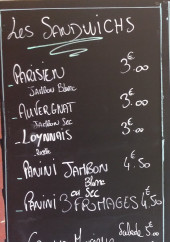 Les SANDWICHS
- PARISIEN 3€00
Jambon Blanc
- AUVERGNAT 3€00
Jambon Sec
- LOYNNAIS 3€00
- PANINI JAMBON 4€50
Blanc
ou Sec
- PANINI 3 FROMAGES 4€50
5€00